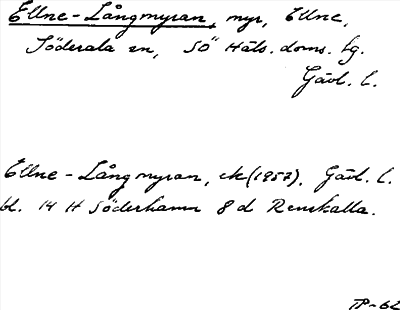 Ellne-Långmyran, myr, Ellne,
Söderala sn, SÖ Häls. doms. lg.
Gävl. l.
Ellne-Långmyran, ek (1957). Gävl. l.
bl. 14 H Söderhamn 8 d Renskalla.
TP-62